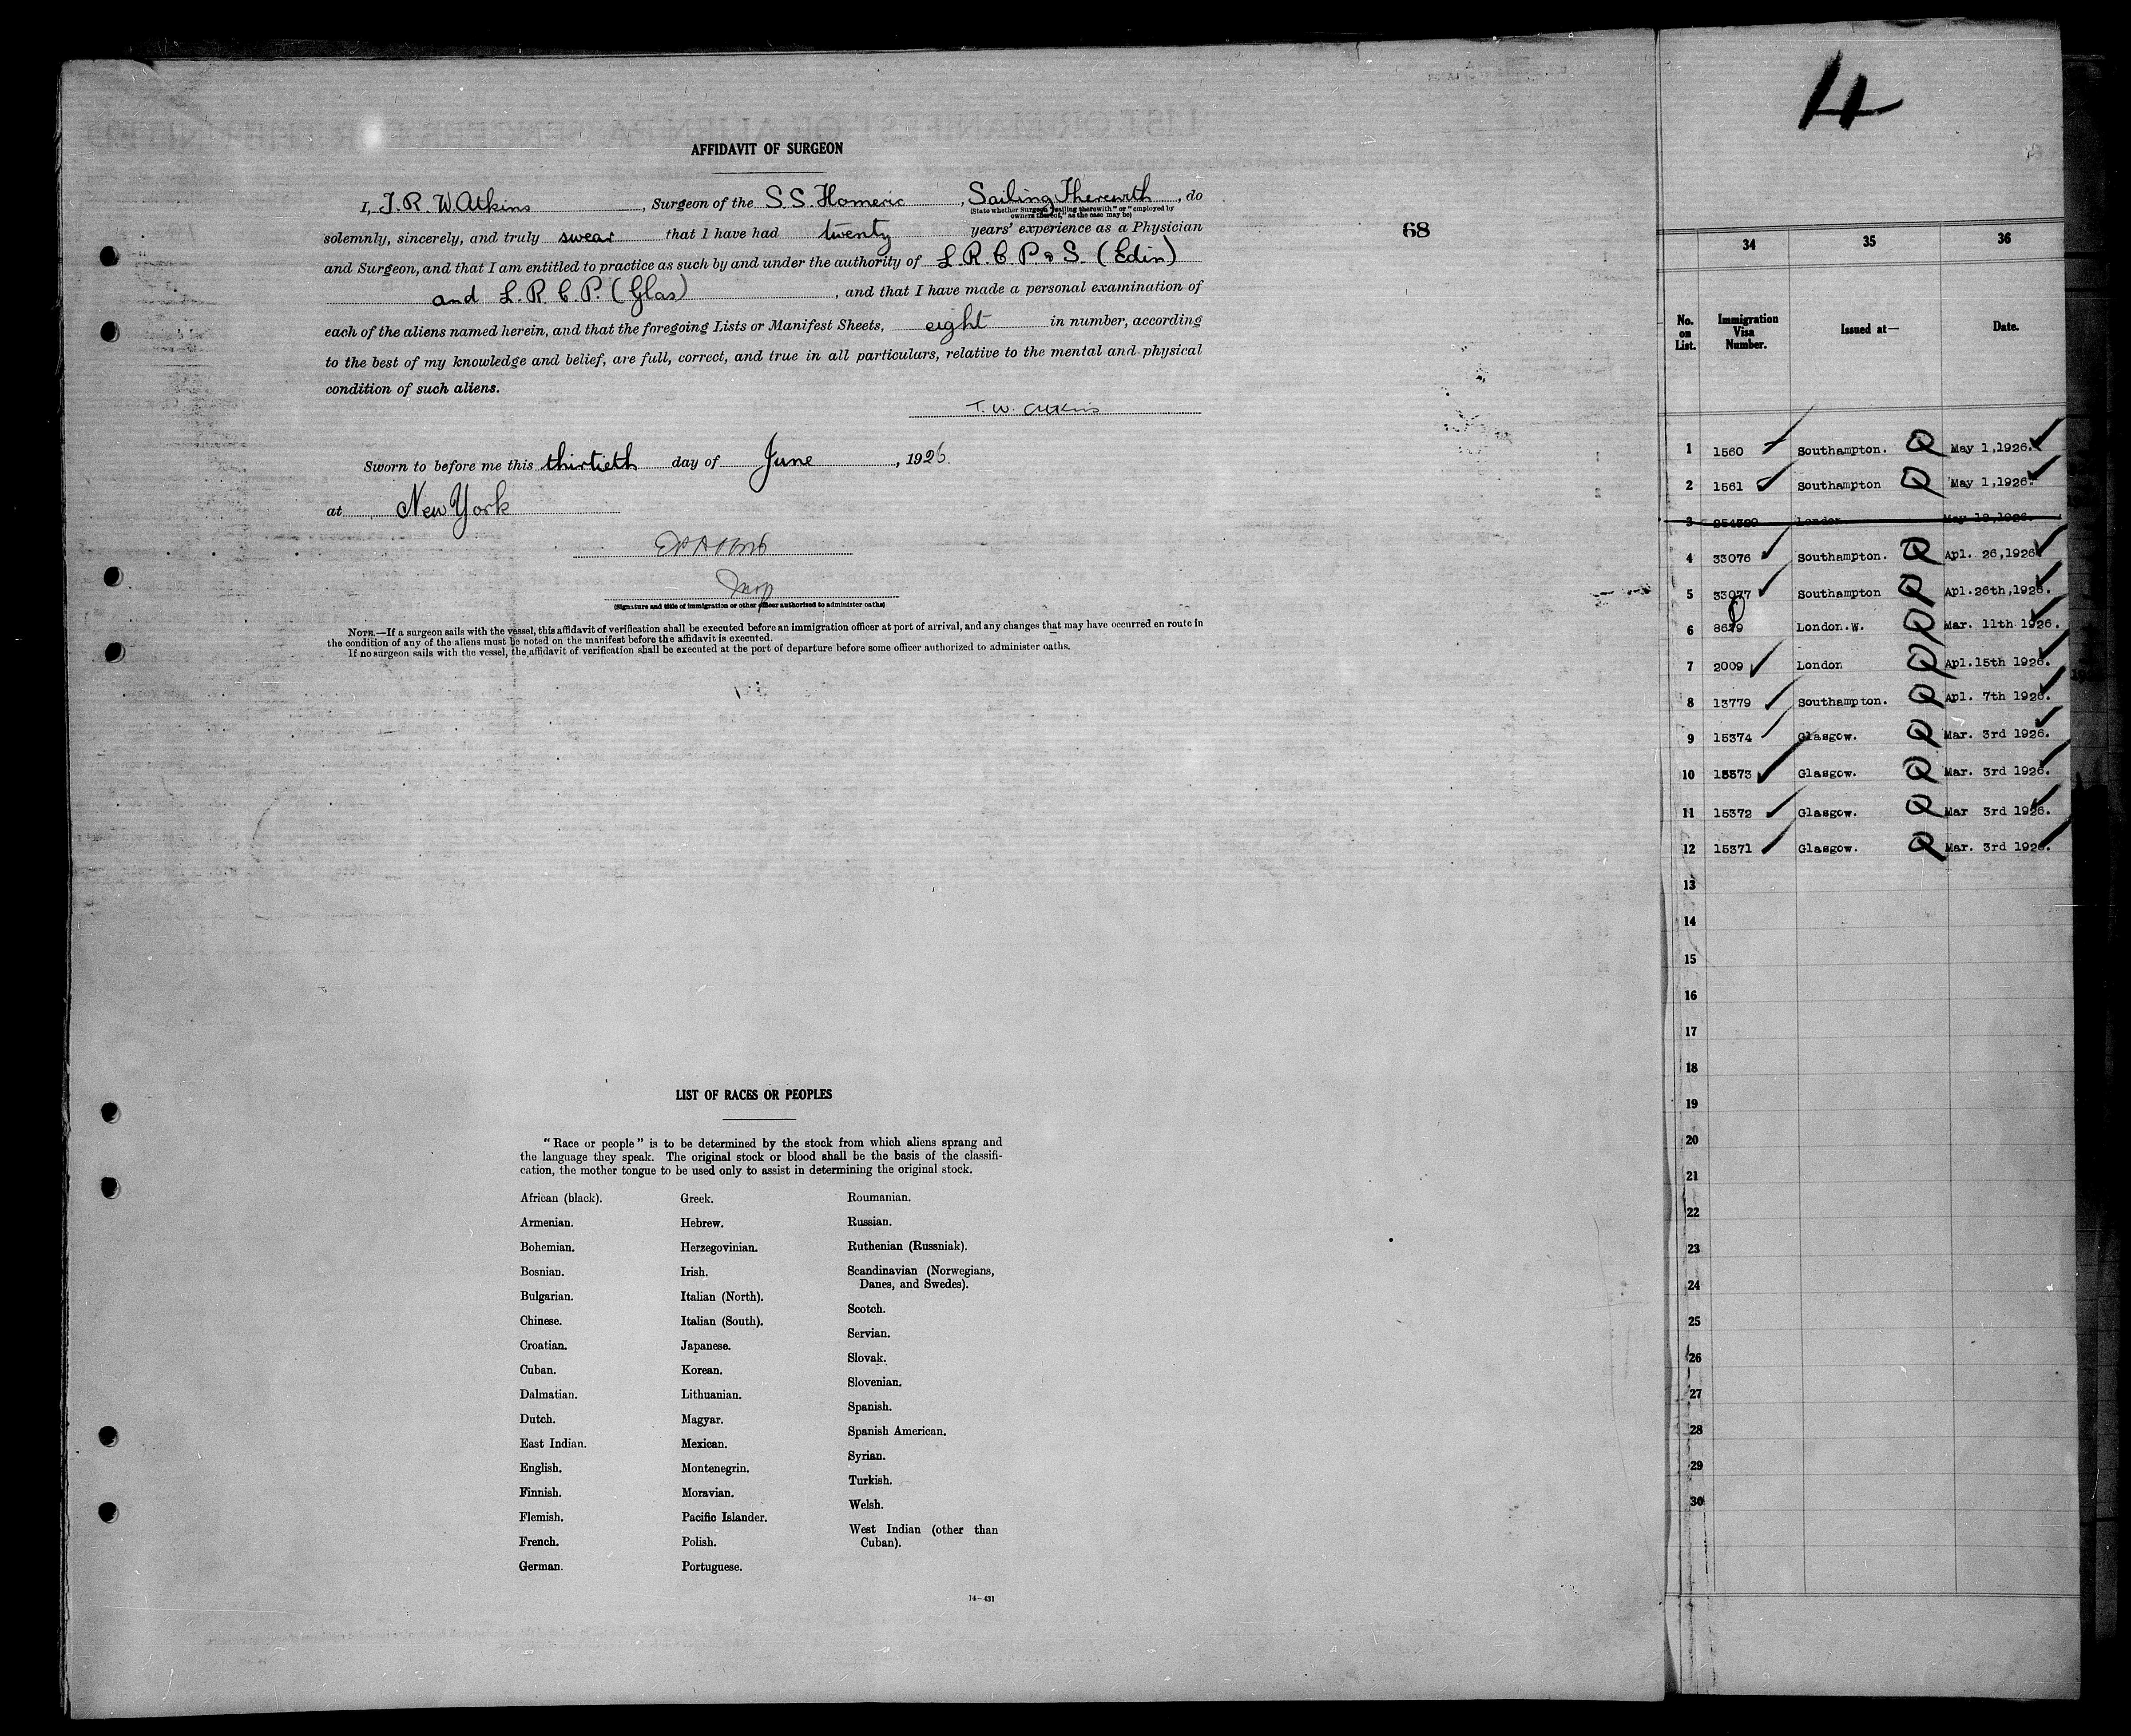 AFFIDAVIT OF SURGEON
I, T. R. W. Atkins, Surgeon of the S.S. Homeric, Sailing Therewith, do
(State whether Surgeon "sailing therewith" or "employed by
owners thereof," as the case may be)
solemnly, sincerely, and truly swear that I have had twenty years' experience as a Physician
and Surgeon, and that I am entitled to practice as such by and under the authority of L.R.C.P. & S. (Edin)
and L.R.C.P. (Glas), and that I have made a personal examination of
each of the aliens named herein, and that the foregoing Lists or Manifest Sheets, eight in number, according
to the best of my knowledge and belief, are full, correct, and true in all particulars, relative to the mental and physical
condition of such aliens.
T. W. Atkins
Sworn to before me this thirtieth day of June, 1926.
at New York
Insp
(Signature and title of immigration or other officer authorized to administer oaths)
NOTE.—If a surgeon sails with the vessel, this affidavit of verification shall be executed before an immigration officer at port of arrival, and any changes that may have occurred en route in
the condition of any of the aliens must be noted on the manifest before the affidavit is executed.
If no surgeon sails with the vessel, the affidavit of verification shall be executed at the port of departure before some officer authorized to administer oaths.
68
LIST OF RACES OR PEOPLES
"Race or people" is to be determined by the stock from which aliens sprang and
the language they speak. The original stock or blood shall be the basis of the classifi-
cation, the mother tongue to be used only to assist in determining the original stock.
African (black).
Armenian.
Bohemian.
Bosnian.
Bulgarian.
Chinese.
Croatian.
Cuban.
Dalmatian.
Dutch.
East Indian.
English.
Finnish.
Flemish.
French.
German.
Greek.
Hebrew.
Herzegovinian.
Irish.
Italian (North).
Italian (South).
Japanese.
Korean.
Lithuanian.
Magyar.
Mexican.
Montenegrin.
Moravian.
Pacific Islander.
Polish.
Portuguese.
Roumanian.
Russian.
Ruthenian (Russniak).
Scandinavian (Norwegians,
Danes, and Swedes).
Scotch.
Servian.
Slovak.
Slovenian.
Spanish.
Spanish American.
Syrian.
Turkish.
Welsh.
West Indian (other than
Cuban).
14—431
4
34 35 36
No. on List. Immigration Visa Number. Issued at— Date.
1 1560 Southampton. Q May 1,1926.
2 1561 Southampton Q May 1,1926.
3 254329 London May 18,1926.
4 33076 Southampton. Q Apl. 26,1926
5 33077 Southampton Q Apl.26th,1926.
6 8679 London.W. Q Mar. 11th 1926.
7 2009 London Q Apl.15th 1926.
8 13779 Southampton. Q Apl. 7th 1926.
9 15374 Glasgow. Q Mar. 3rd 1926.
10 15373 Glasgow. Q Mar. 3rd 1926.
11 15372 Glasgow. Q Mar 3rd 1926.
12 15371 Glasgow. Q Mar. 3rd 1926.
13
14
15
16
17
18
19
20
21
22
23
24
25
26
27
28
29
30